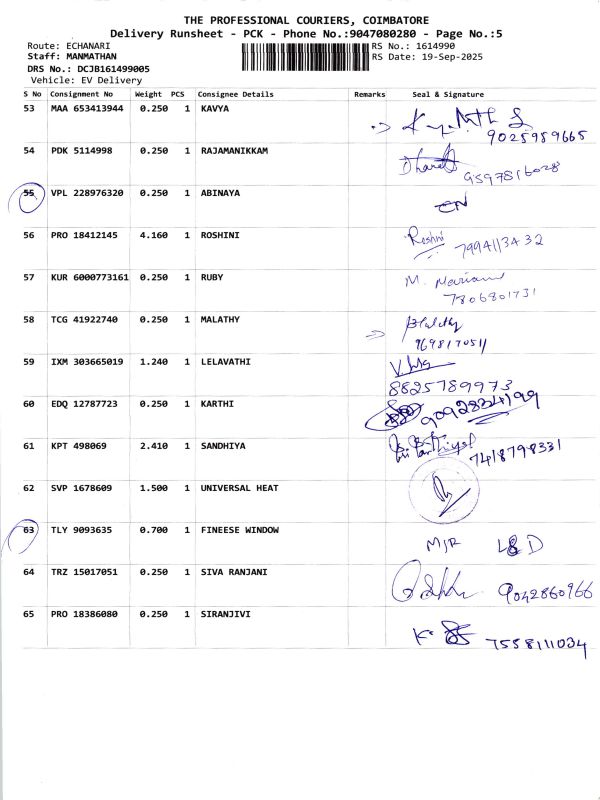 THE PROFESSIONAL COURIERS, COIMBATORE
Delivery Runsheet - PCK - Phone No.:9047080280 - Page No.:5
Route: ECHANARI RS No.: 1614990
Staff: MANMATHAN RS Date: 19-Sep-2025
DRS No.: DCJB161499005
Vehicle: EV Delivery
S No Consignment No Weight PCS Consignee Details Remarks Seal & Signature
53 MAA 653413944 0.250 1 KAVYA
9025959665
54 PDK 5114998 0.250 1 RAJAMANIKKAM
9597816028
55 VPL 228976320 0.250 1 ABINAYA
56 PRO 18412145 4.160 1 ROSHINI Roshni
7994113432
57 KUR 6000773161 0.250 1 RUBY M.
7806801731
58 TCG 41922740 0.250 1 MALATHY
9698170511
59 IXM 303665019 1.240 1 LELAVATHI
8825789973
60 EDQ 12787723 0.250 1 KARTHI
61 KPT 498069 2.410 1 SANDHIYA
7418798331
62 SVP 1678609 1.500 1 UNIVERSAL HEAT
63 TLY 9093635 0.700 1 FINEESE WINDOW
64 TRZ 15017051 0.250 1 SIVA RANJANI
9042860966
65 PRO 18386080 0.250 1 SIRANJIVI
7558111034